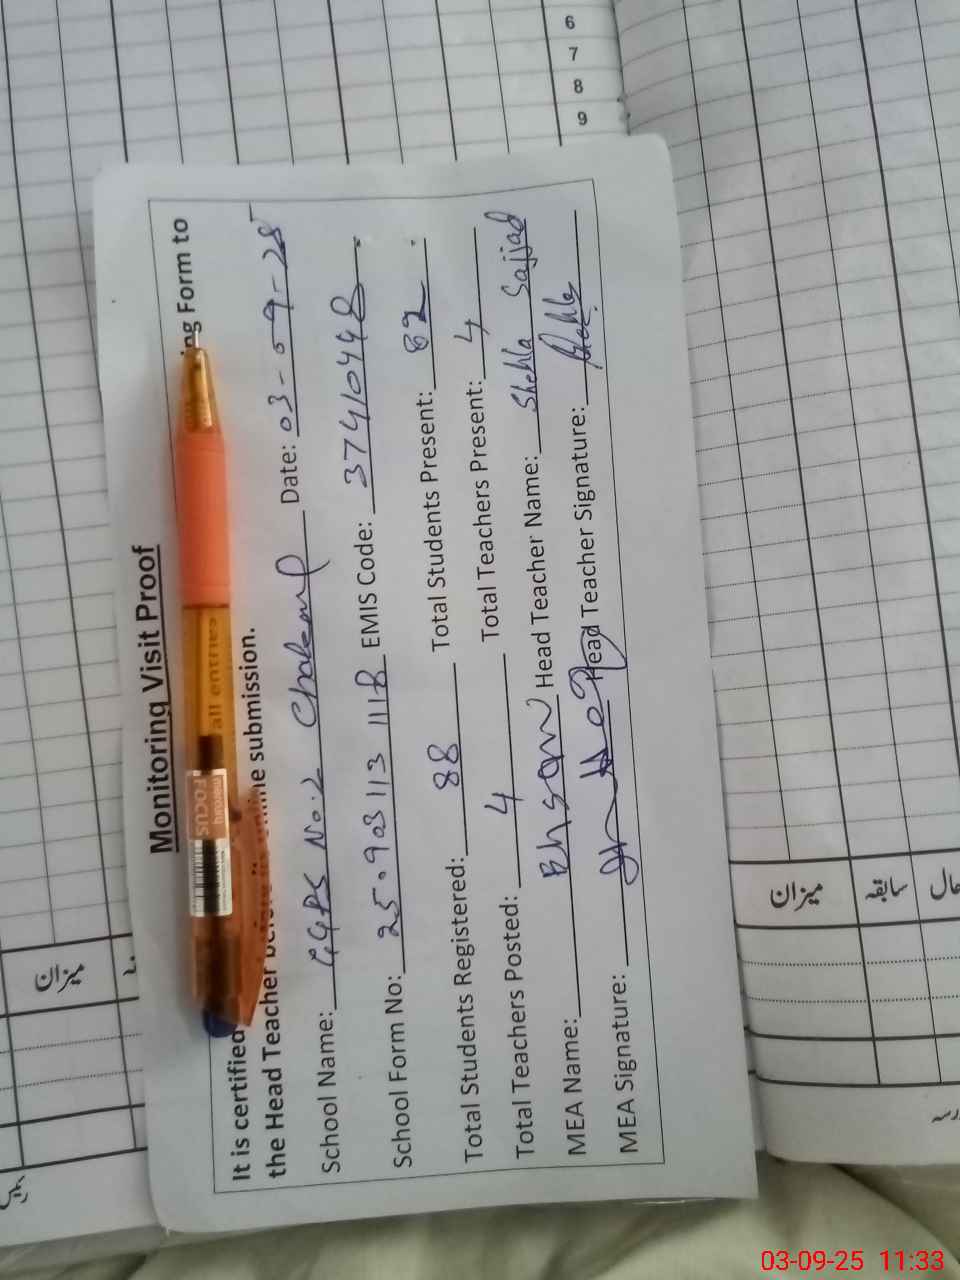 Monitoring Visit Proof
It is certified ing Form to
the Head Teacher submission.
School Name: GGPS No.2 Date: 03-09-25
School Form No: EMIS Code: 37410448
Total Students Registered: 88 Total Students Present: 82
Total Teachers Posted: 4 Total Teachers Present: 4
MEA Name: Head Teacher Name: Shehla Sajjad
MEA Signature: Head Teacher Signature: Shehla
all entries
FOCUS
6
7
8
9
میزان
میزان
سابقہ
حال
03-09-25 11:33